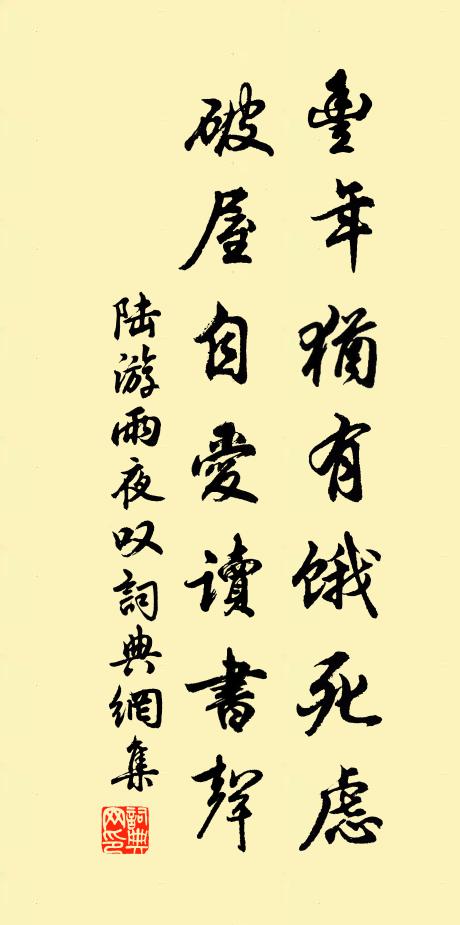 豐年猶有餓死慮
破屋自愛讀書聲
陆游雨夜叹詞典網集
詞典网印